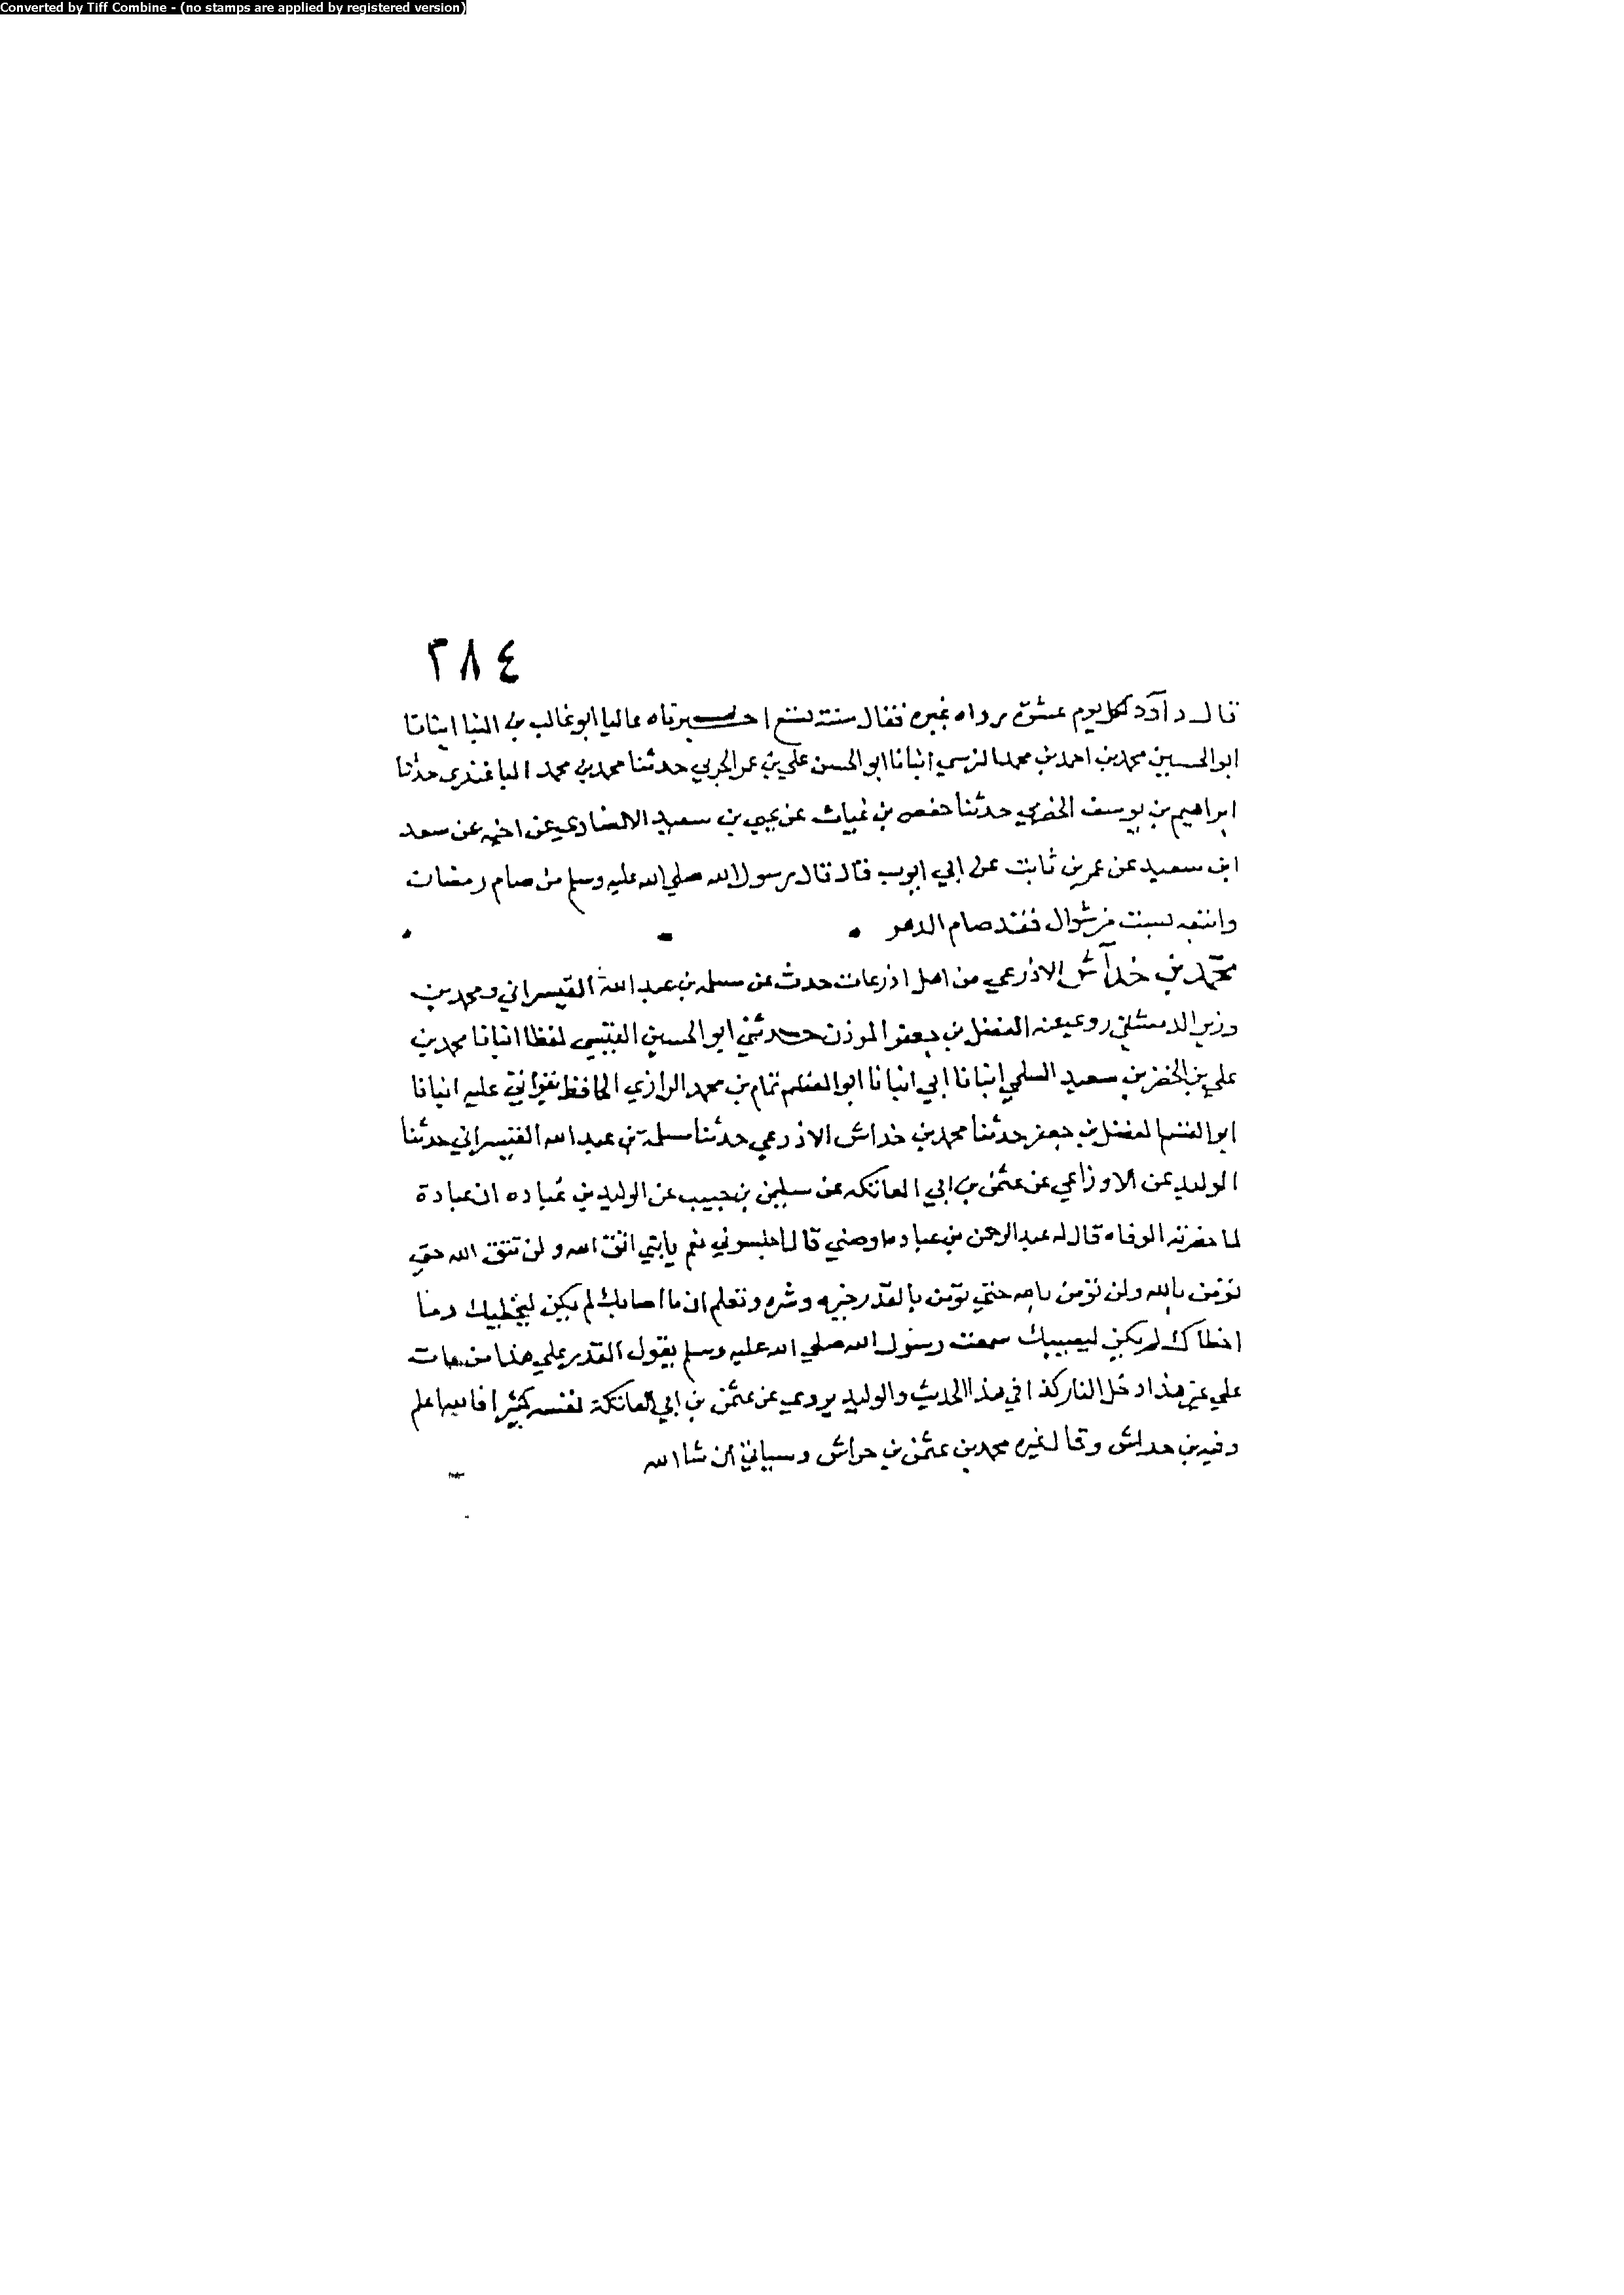 Converted by Tiff Combine - (no stamps are applied by registered version)
٣٨٤
قال داود كل يوم عشرة رواه غيره فقال ستة لتسع اخبرناه عاليا ابو غالب بن البنا انبانا
ابو الحسين محمد بن احمد بن محمد النرسي انبانا ابو الحسن علي بن عمر الحربي حدثنا محمد بن محمد الباغندي حدثنا
ابراهيم بن يوسف الحضرمي حدثنا حفص بن غياث عن يحيى بن سعيد الانصاري عن اخيه عن سعد
ابن سعيد عن عمر بن ثابت عن ابي ايوب قال قال رسول الله صلي الله عليه وسلم من صام رمضان
واتبعه بست من شوال فقد صام الدهر
محمد بن خداش الاذرعي من اهل اذرعات حدث عن مسلمة بن عبد الله القيسراني ومحمد بن
وزير الدمشقي روي عنه الفضل بن جعفر الموذن حدثني ابو الحسين القيسي لفظا انبانا محمد بن
علي بن الخضر بن سعيد السلمي انبانا ابي انبانا ابو القسم تمام بن محمد الرازي الحافظ بقراتي عليه انبانا
ابو القسم الفضل بن جعفر حدثنا محمد بن خداش الاذرعي حدثنا مسلمة بن عبد الله القيسراني حدثنا
الوليد عن الاوزاعي عن عثمن بن ابي العاتكه عن سليمن بن حبيب عن الوليد بن عباده ان عبادة
لما حضرته الوفاه قال له عبد الرحمن بن عباده اوصني قال اجلسوني نعم يابني اتق الله ولن تتق الله حتي
تؤمن بالله ولن تؤمن بالله حتي تؤمن بالقدر خيره وشره وتعلم ان ما اصابك لم يكن ليخطيك وما
اخطاك لم يكن ليصيبك سمعت رسول الله صلي الله عليه وسلم يقول القدر علي هذا من مات
علي غير هذا دخل النار كذا في هذا الحديث والوليد يروي عن عثمن بن ابي العاتكة نفسه كثيرا فالله اعلم
وفيه بن خداش وقال غيره محمد بن عثمن بن حراش وسياتي ان شا الله